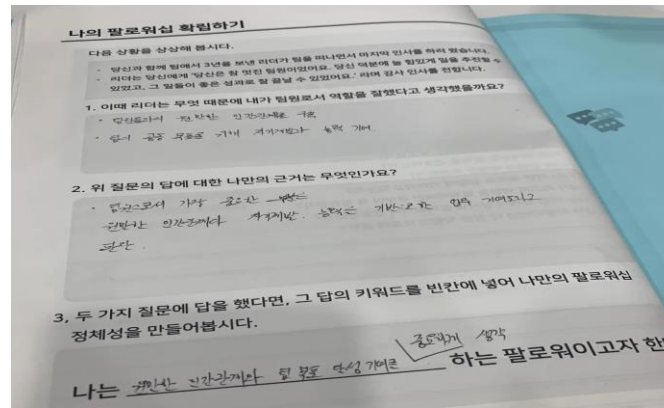 나의 팔로워십 확립하기
다음 상황을 상상해 봅시다.
· 당신과 함께 팀에서 3년을 보낸 리더가 팀을 떠나면서 마지막 인사를 하러 왔습니다.
· 리더는 당신에게 '당신은 참 멋진 팀원이었어요. 당신 덕분에 늘 힘있게 일을 추진할 수
있었고, 그 일들이 좋은 성과로 잘 끝날 수 있었어요.' 라며 감사 인사를 전합니다.
1. 이때 리더는 무엇 때문에 내가 팀원로서 역할을 잘했다고 생각했을까요?
· 원만한 인간관계를
· 팀의 공동 목표를 위해 능력 기여.
2. 위 질문의 답에 대한 나만의 근거는 무엇인가요?
· 팀원으로서 가장 중요한
원만한 인간관계와 업무 기여도라고
판단.
3. 두 가지 질문에 답을 했다면, 그 답의 키워드를 빈칸에 넣어 나만의 팔로워십
정체성을 만들어봅시다.
중요하게 생각
나는 원만한 인간관계와 팀 목표 달성 기여를 하는 팔로워이고자 한